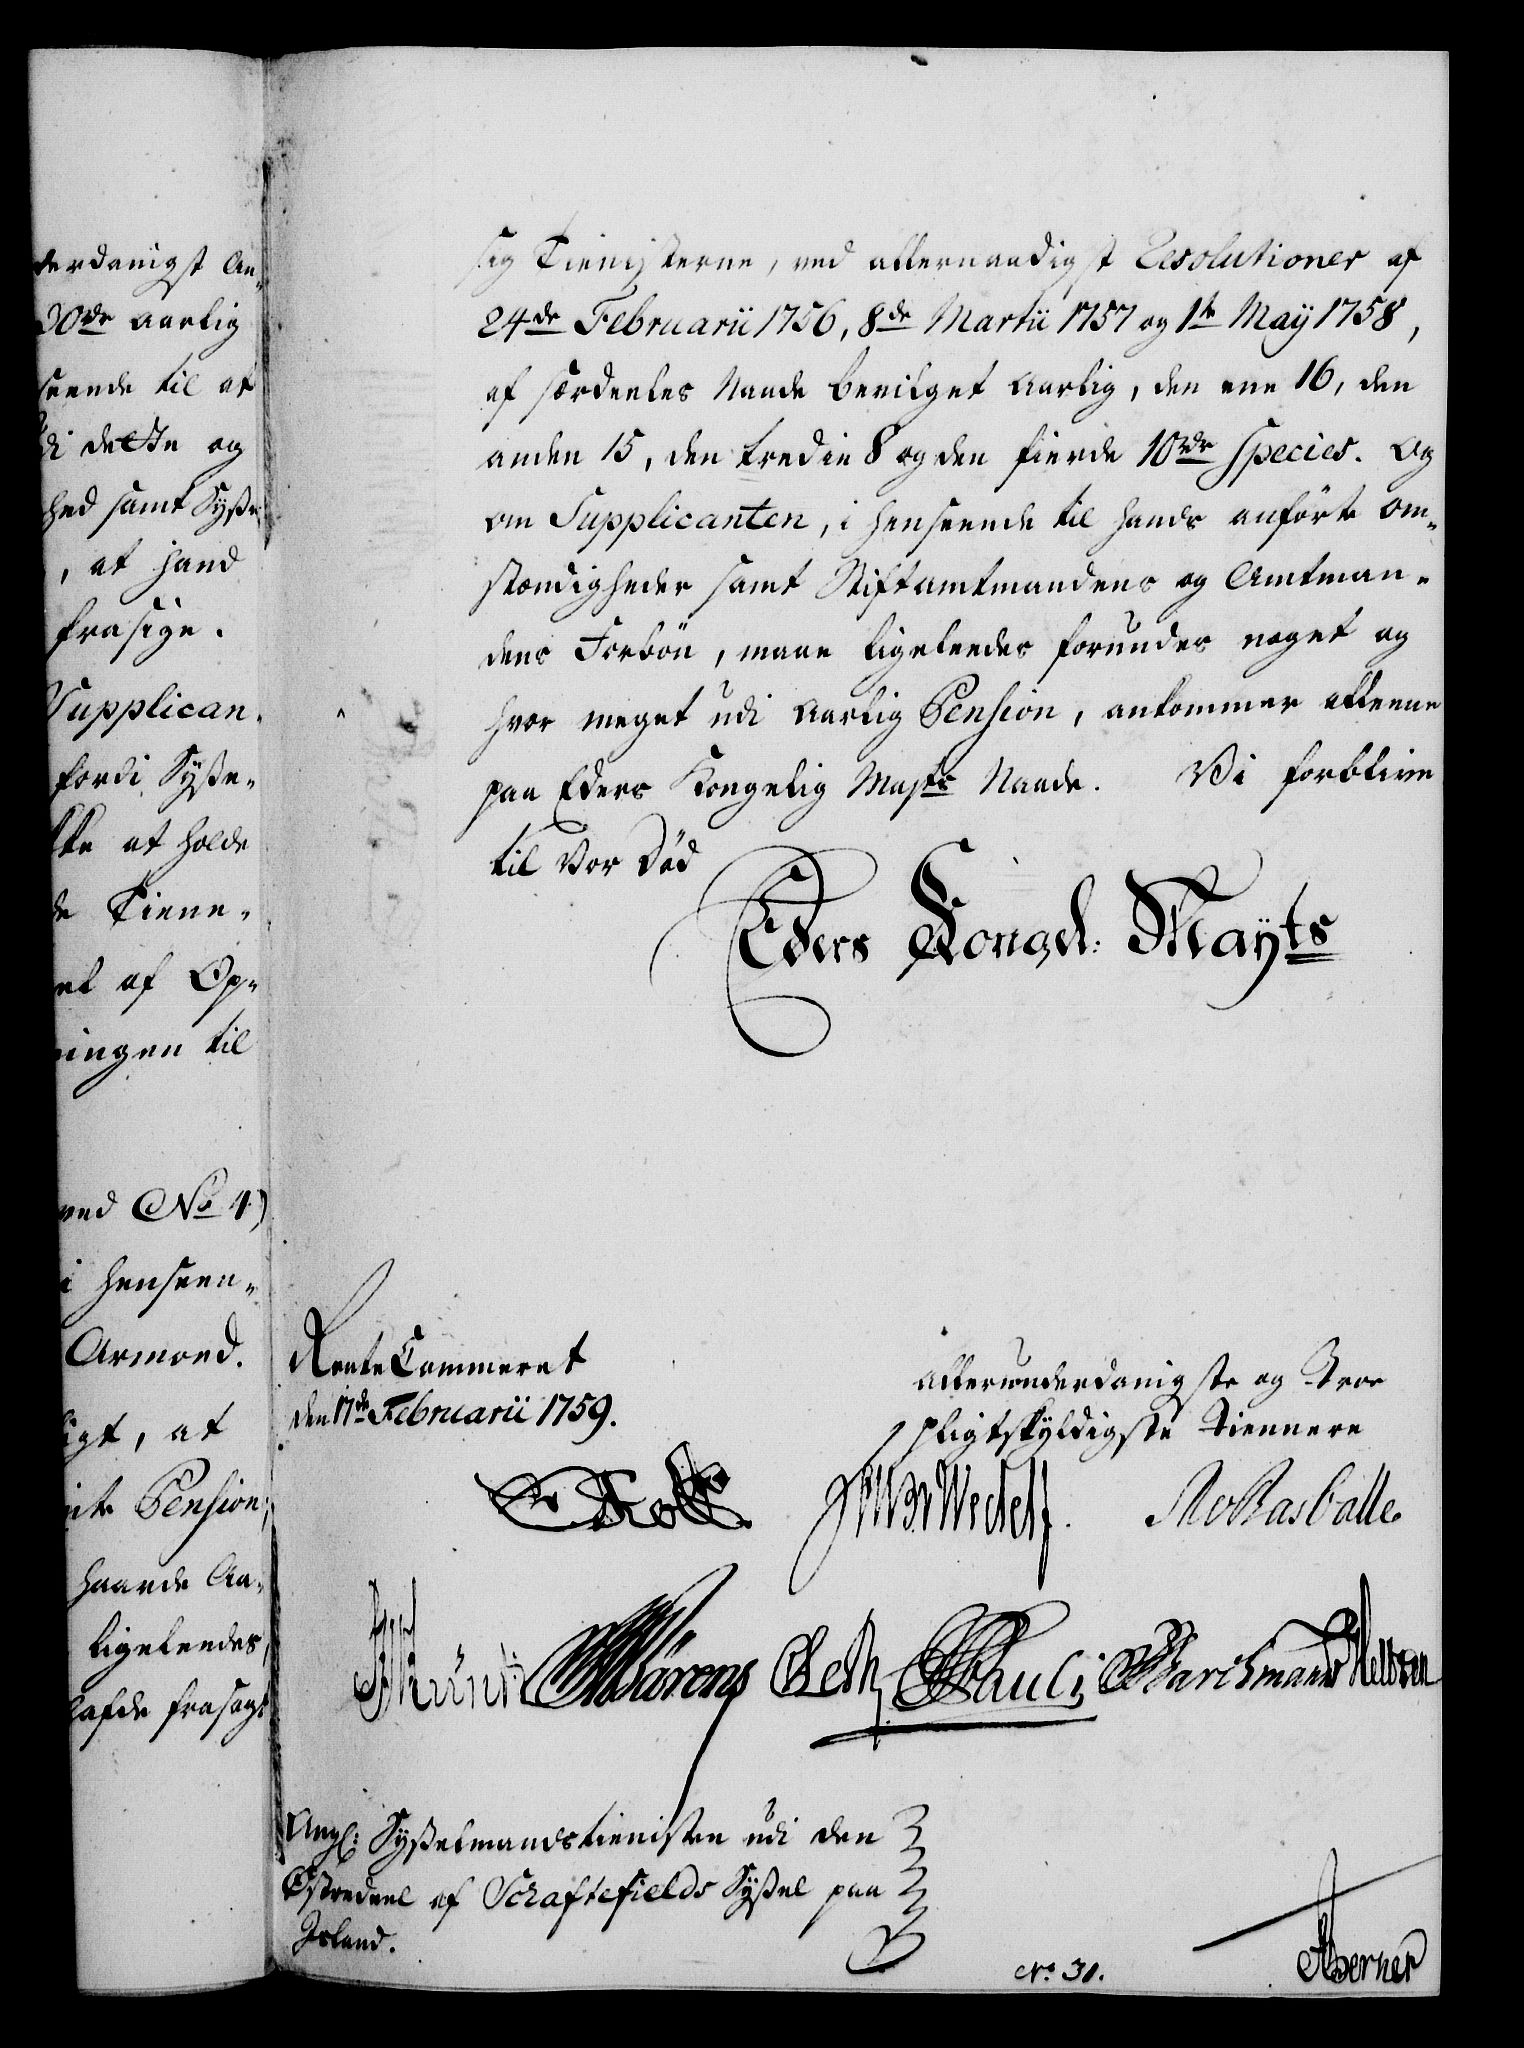 derdanigst An-
30de aarlig
seende til at
di dette og
hed samt Sysse-
, at hand
frasige.
Supplican-
fordi Sysse-
kke at holde
de Tiene-
et af Op-
ningen til
ved No 4)
i henseen-
Armoed.
ligt, at
Pension,
haarde Aa-
ligeleedes,
hafde frasagt
sig Tienisterne, ved allernaadigst Resolutioner af
24de Februarii 1756, 8de Martii 1757 og 1te Maji 1758,
af særdeeles Naade bevilget aarlig, den eene 16, den
anden 15, den tredie 8 og den fierde 10rdr Species. Og
om Supplicanten, i henseende til hands anförte Om-
stændigheder samt Stiftamtmandens og Amtman-
dens Forbön, maae ligeleedes forundes noget og
hvor meget udi aarlig Pension, ankommer alleene
paa Eders Kongelig Mayts Naade. Vi forblive
til vor Död
Eders Kongel: Mayts
RenteCammeret
den 17de Februarii 1759.
allerunderdanigste og Troe
pligtskyldigste Tiennere
Wedell.
Rasballe
Mörens Oeth Pauli Marchmand
Ang: Sysselmandstienisten udi den
Östredeel af Schaftefields Syssel paa
Island.
No 31.
Berner